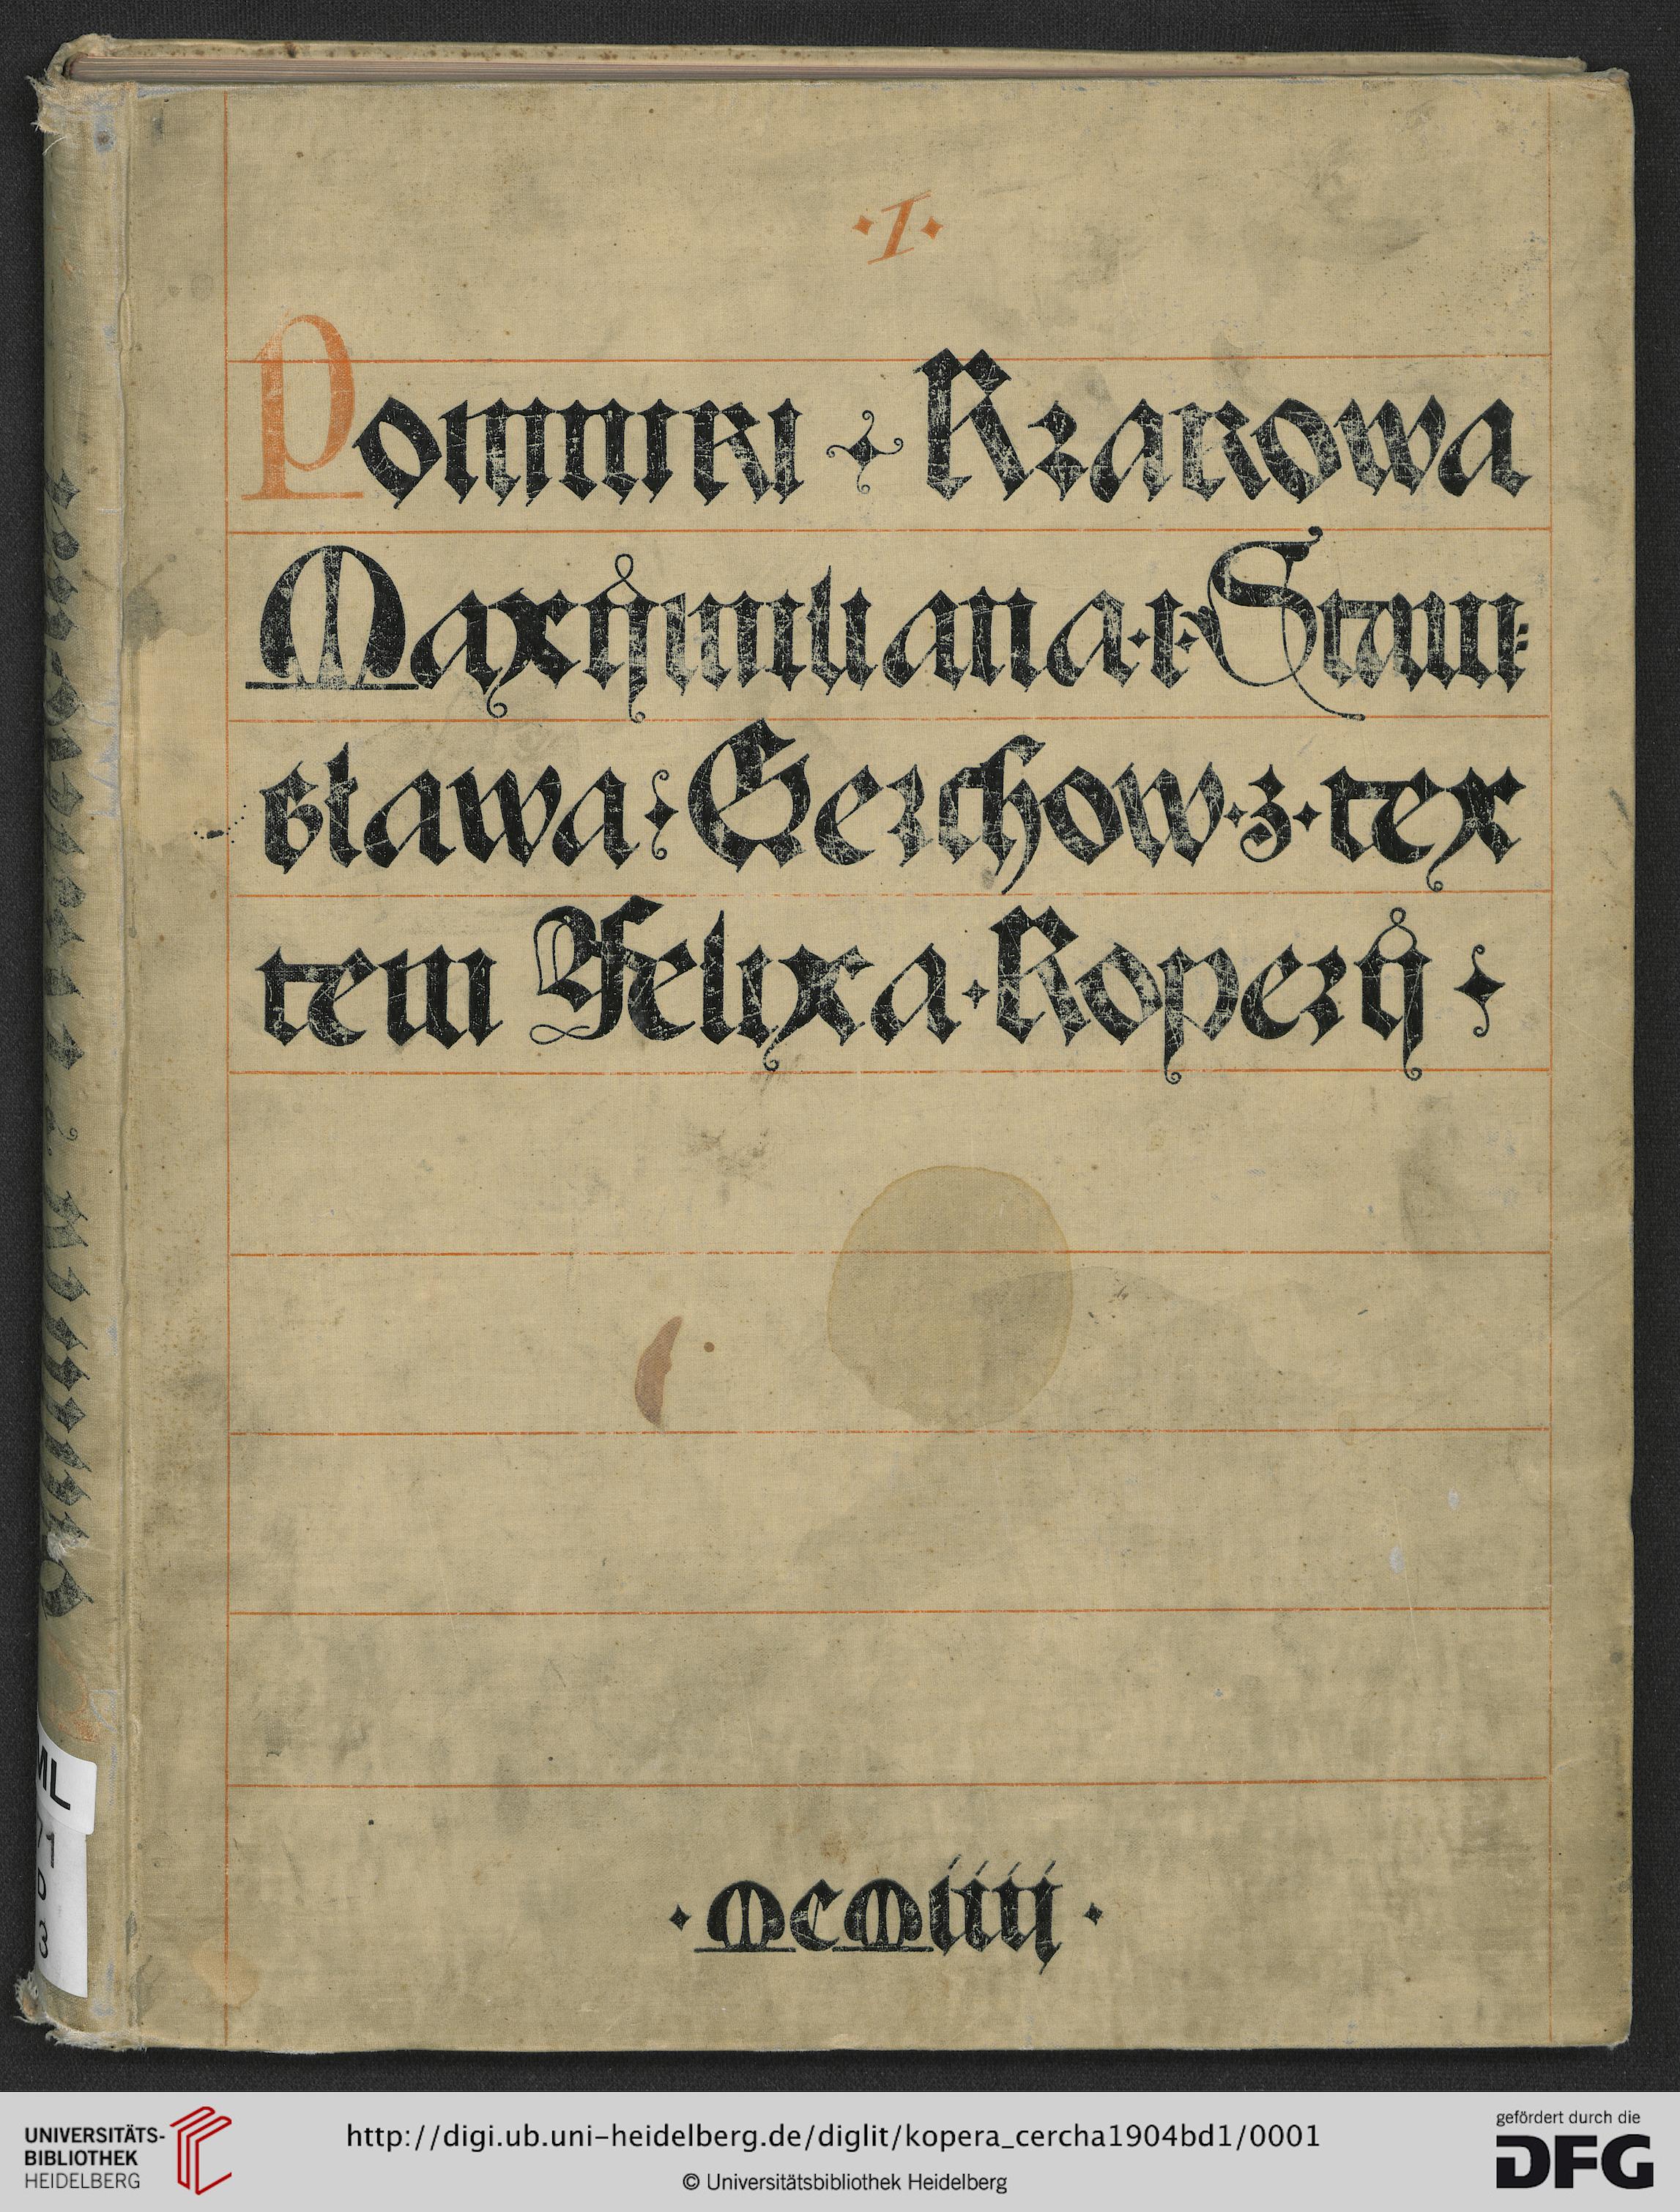 ·I·
Pomniki Krakowa
Maxymiliana·i·Stani=
sława Cerchow·z·tex
tem Felixa·Kopery
·MCMIIIJ·
ML
71
D
3
UNIVERSITÄTS-
BIBLIOTHEK
HEIDELBERG
http://digi.ub.uni-heidelberg.de/diglit/kopera_cercha1904bd1/0001
© Universitätsbibliothek Heidelberg
gefördert durch die
DFG